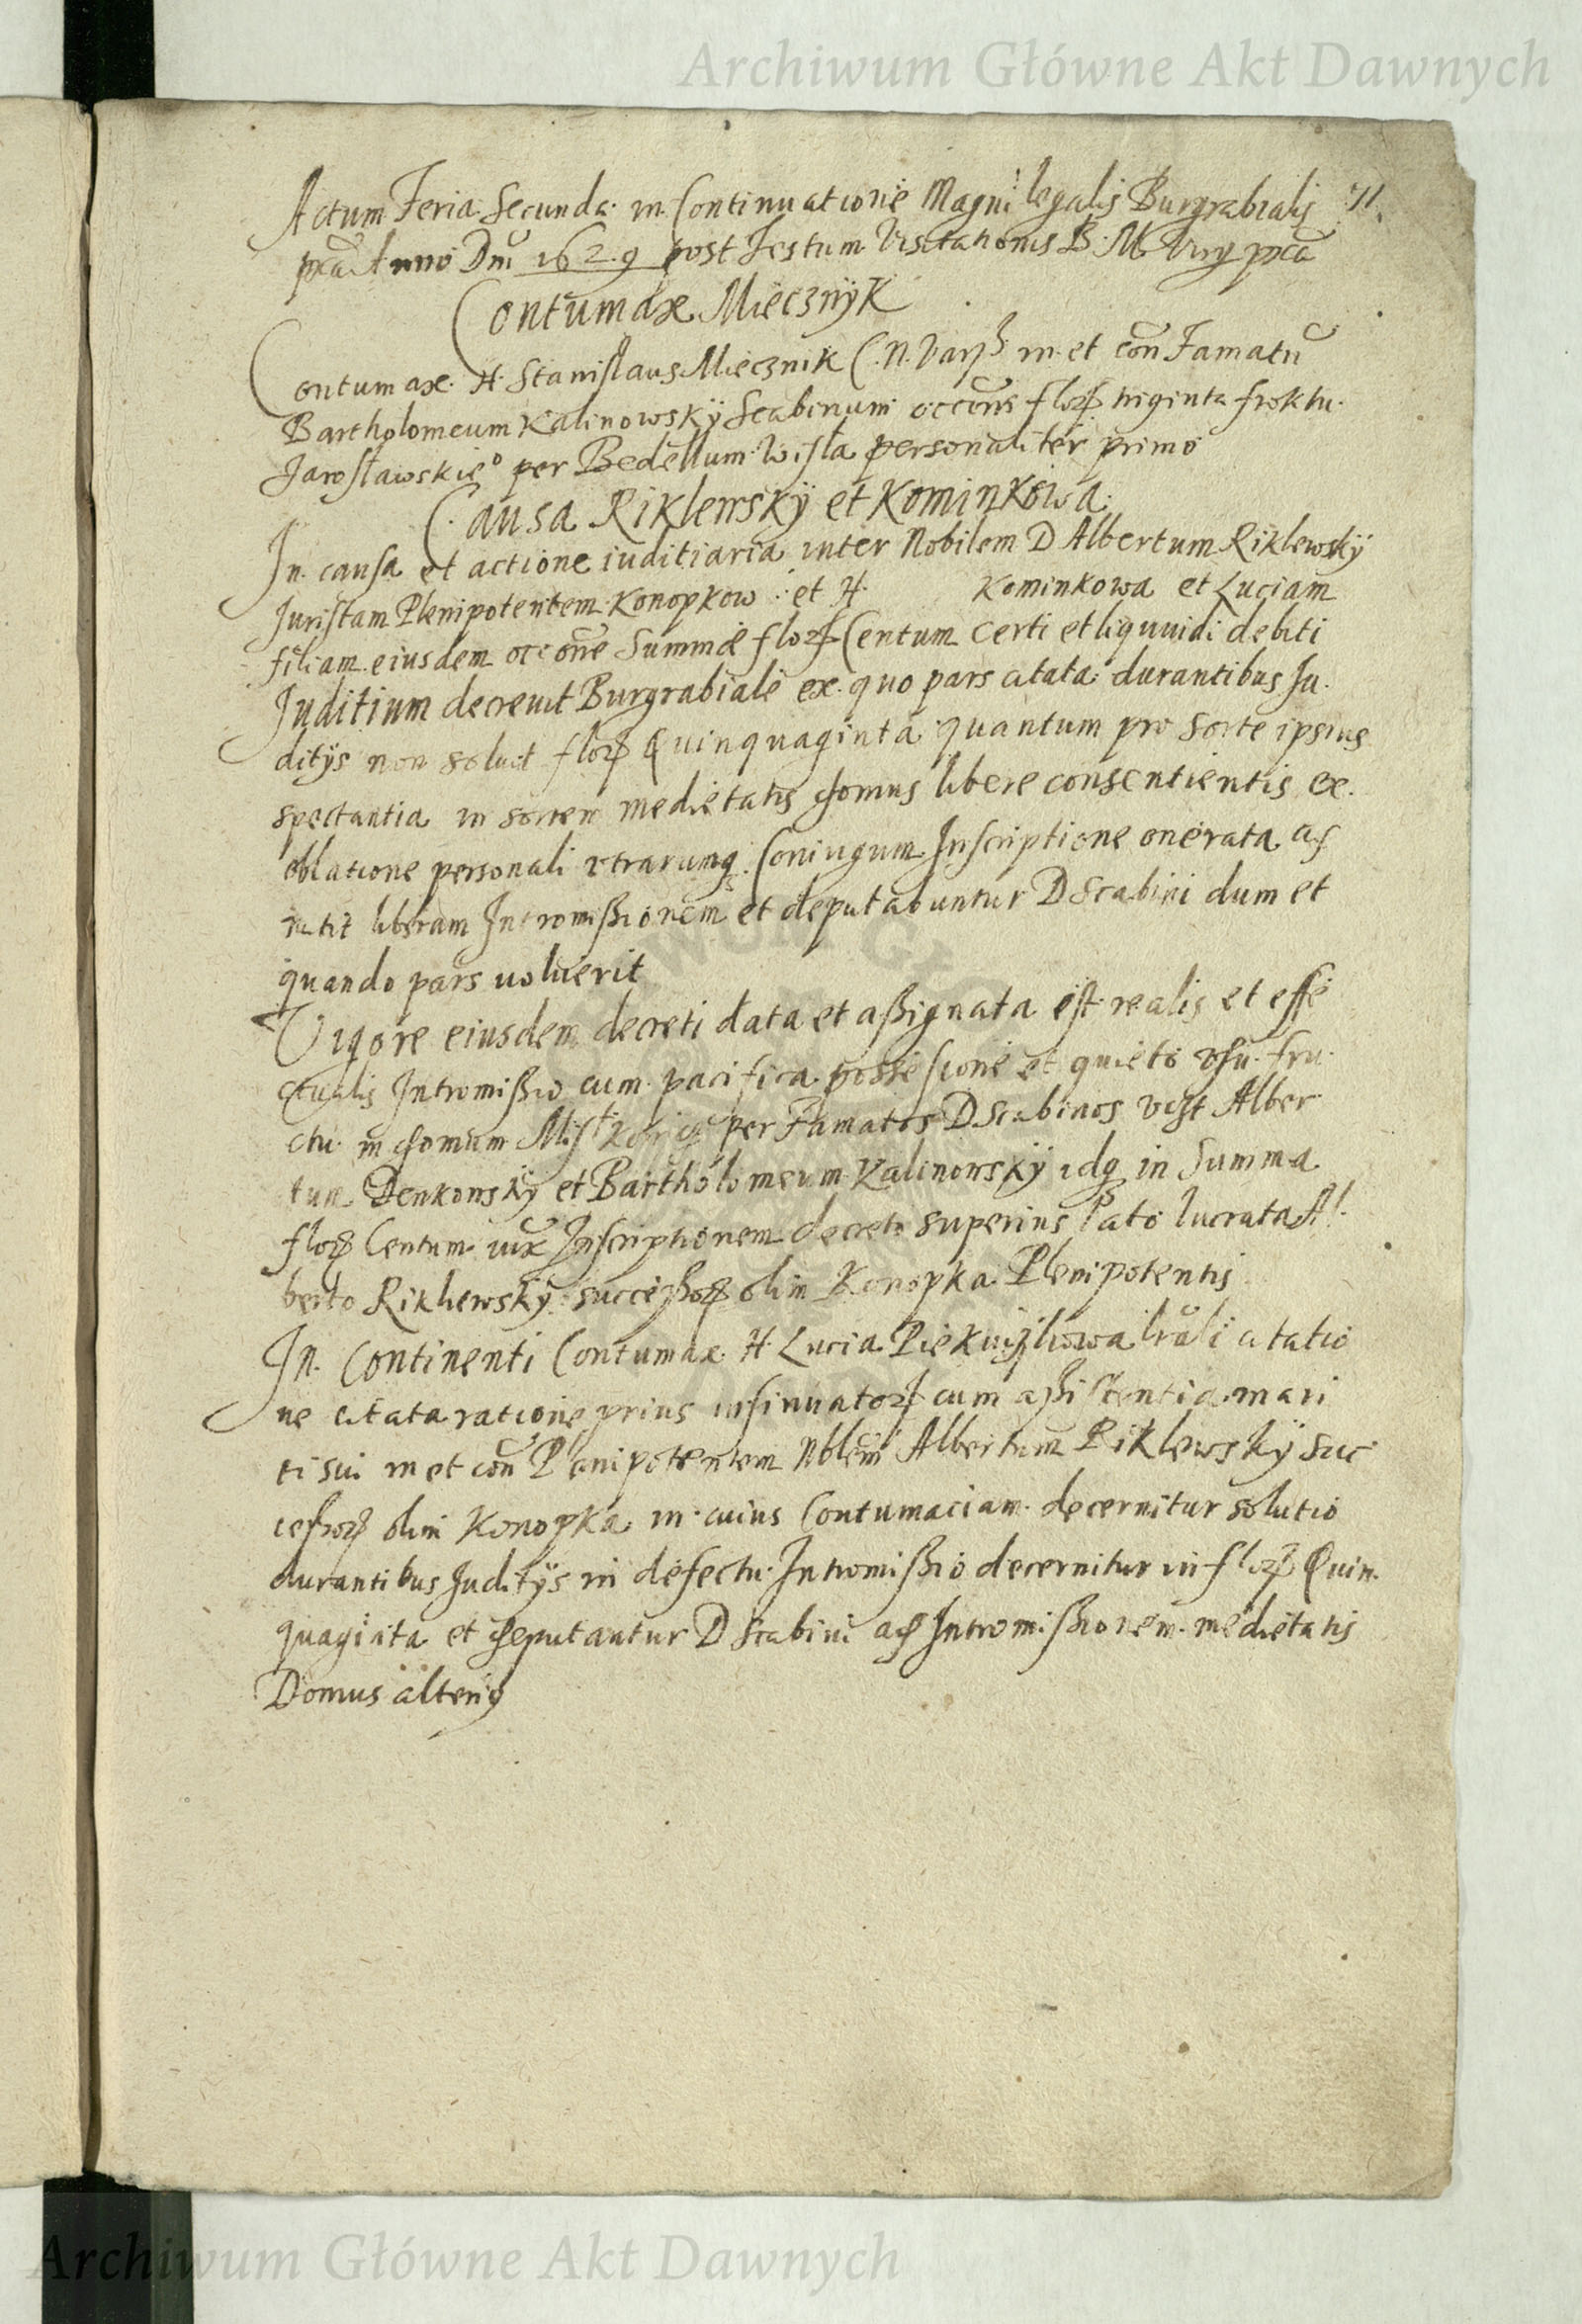 Archiwum Główne Akt Dawnych
Actum Feria Secunda in Continuatione Magni legalis Burgrabialis 71.
Anno Dni 1629 post Festum Visitationis B. M. Virg
Contumax Miecznÿk
Contumax H. Stanislaus Miecznik C. N. Vars in et con Famatu
Bartholomeum Kalinowskÿ Scabinum occone flor triginta
Jaroslawskie° per Bedellum Wisla personaliter primo
Causa Riklewskÿ et Kominkowa
In causa et actione iuditiaria inter Nobilem D Albertum Riklewskÿ
Juristam Plenipotentem Konopkow et H. Kominkowa et Luciam
filiam eiusdem occone Summæ flor Centum certi et liquuidi debiti
Juditium decreuit Burgrabiale ex quo pars citata durantibus Ju
ditÿs non soluit flor Quinquaginta quantum pro sorte ipsius
spectantia in sortem medietatis domus libere consentientis ex
oblatione personali utrarumq Coniugum Inscriptione onerata
liberam Intromissionem et deputabuntur D Scabini dum et
quando pars uoluerit
Vigore eiusdem decreti data et assignata est realis et effe
ctualis Intromissio cum pacifica possessione et quieto usu fru
ctu in domum per Famatos D Scabinos Alber
tum Denkowskÿ et Bartholomeum Kalinowskÿ idq in Summa
flor Centum iux Inscriptionem decreto superius lato lucrata Al
berto Riklewskÿ successor olim Konopka Plenipotentis
In Continenti Contumax H. Lucia lrali citatio
ne citata ratione prius insinuator cum assistentia mari
ti sui in et con Plenipotentem Nblem Albertum Riklewskÿ suc
cessor olim Konopka in cuius Contumaciam decernitur solutio
durantibus Juditÿs in defectu Intromissio decernitur in flor Quin
quaginta et deputantur D Scabini ad Intromissionem medietatis
Domus alterig
Archiwum Główne Akt Dawnych